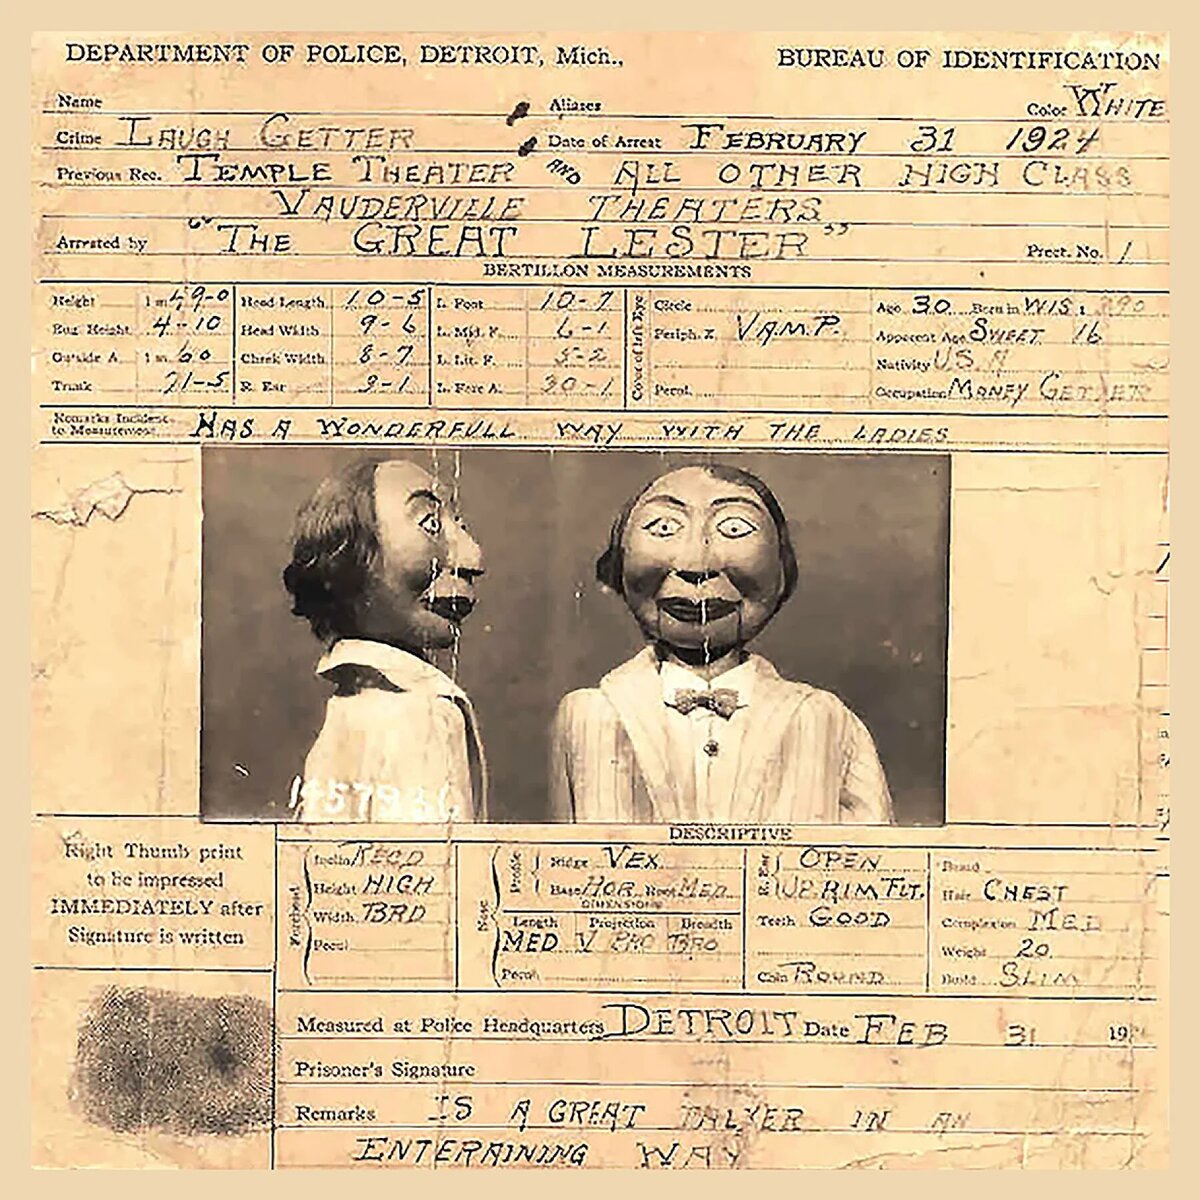 DEPARTMENT OF POLICE, DETROIT, Mich., BUREAU OF IDENTIFICATION
Name Aliases Color WHITE
Crime LAUGH GETTER Date of Arrest FEBRUARY 31 1924
Previous Rec. TEMPLE THEATER AND ALL OTHER HIGH CLASS
VAUDERVILLE THEATERS
Arrested by "THE GREAT LESTER" Prect. No. 1
BERTILLON MEASUREMENTS
Height 1 m 49-0 Head Length 10-5 L. Foot 10-7 Circle Age 30 Born in WIS 1890
Eng. Height 4-10 Head Width 9-6 L. Mid. F. 6-1 Periph. Z. VAMP. Apparent Age SWEET 16
Outside A. 1 m 60 Cheek Width 8-7 L. Lit. F. 5-2 Nativity U S A
Trunk 21-5 R. Ear 9-1 L. Fore A. 30-1 Pecul. Occupation MONEY GETTER
Color of left Eye
Remarks Incident to Measurement HAS A WONDERFULL WAY WITH THE LADIES
DESCRIPTIVE
Right Thumb print
to be impressed
IMMEDIATELY after
Signature is written
Forehead
Inclin RECD
Height HIGH
Width BRD
Pecul
Nose
Profile
Ridge VEX
Base HOR Root MED
DIMENSIONS
Length Projection Breadth
MED V PRO BRO
Pecul
R. Ear
OPEN
UP RIM FLT.
Teeth GOOD
Chin ROUND
Beard
Hair CHEST
Complexion MED
Weight 20
Build SLIM
Measured at Police Headquarters DETROIT Date FEB 31 19
Prisoner's Signature
Remarks IS A GREAT TALKER IN AN
ENTERAINING WAY